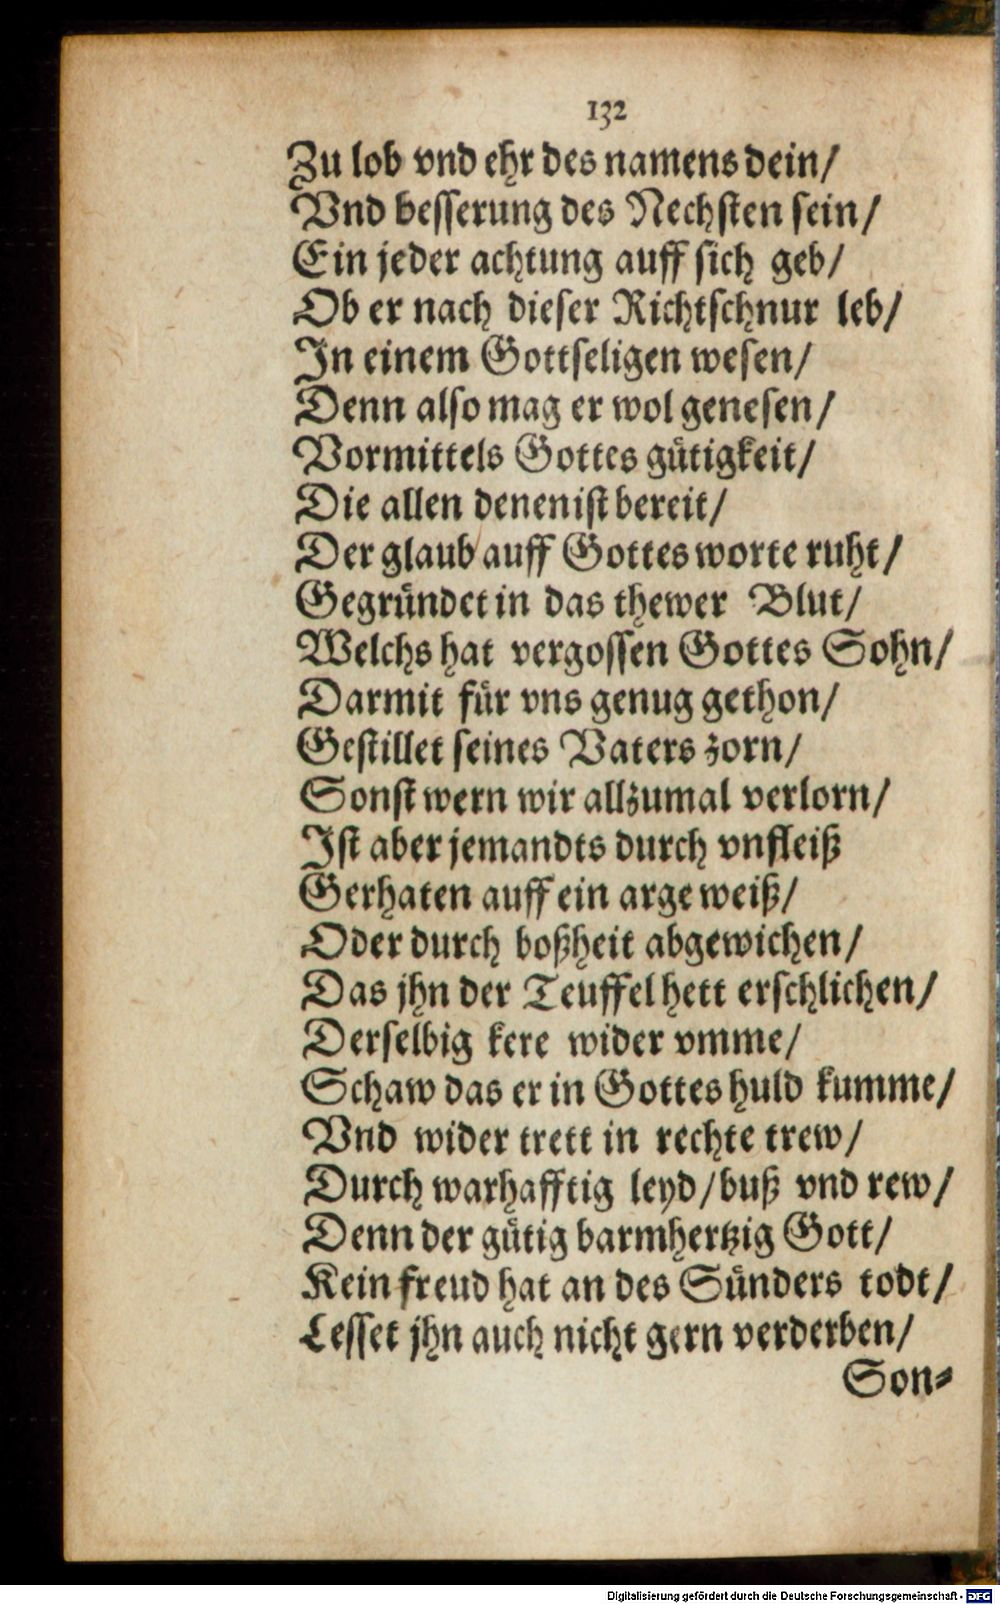 132
Zu lob vnd ehr des namens dein/
Vnd besserung des Nechsten sein/
Ein jeder achtung auff sich geb/
Ob er nach dieser Richtschnur leb/
In einem Gottseligen wesen/
Denn also mag er wol genesen/
Vormittels Gottes gütigkeit/
Die allen denen ist bereit/
Der glaub auff Gottes worte ruht/
Gegründet in das thewer Blut/
Welchs hat vergossen Gottes Sohn/
Darmit für vns genug gethon/
Gestillet seines Vaters zorn/
Sonst wern wir allzumal verlorn/
Ist aber jemandts durch vnfleiß
Gerhaten auff ein arge weiß/
Oder durch boßheit abgewichen/
Das jhn der Teuffel hett erschlichen/
Derselbig kere wider vmme/
Schaw das er in Gottes huld kumme/
Vnd wider trett in rechte trew/
Durch warhafftig leyd/buß vnd rew/
Denn der gütig barmhertzig Gott/
Kein freud hat an des Sünders todt/
Lesset jhn auch nicht gern verderben/
Son-
Digitalisierung gefördert durch die Deutsche Forschungsgemeinschaft - DFG